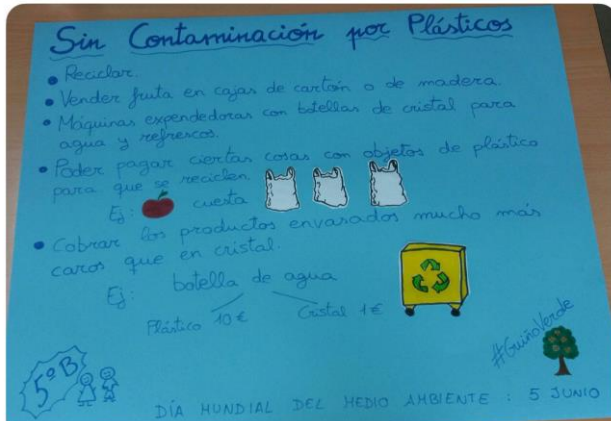 Sin Contaminación por Plásticos
• Reciclar.
• Vender fruta en cajas de cartón o de madera.
• Máquinas expendedoras con botellas de cristal para
agua y refrescos.
• Poder pagar ciertas cosas con objetos de plástico
para que se reciclen.
Ej: cuesta
• Cobrar los productos envasados mucho más
caros que en cristal.
Ej: botella de agua
Plástico 10 € Cristal 1 €
#GuiñoVerde
5º B
DÍA MUNDIAL DEL MEDIO AMBIENTE : 5 JUNIO